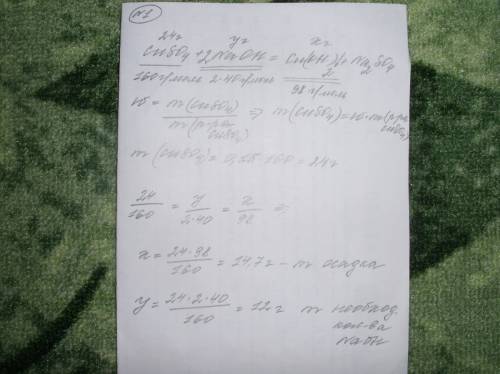 №1
24г yг xг
CuSO4 + 2NaOH = Cu(OH)2↓ + Na2SO4
160г/моль 2·40г/моль 98 г/моль
w = m(CuSO4) / m(р-ра CuSO4) ⇒ m(CuSO4) = w·m(р-ра CuSO4)
m(CuSO4) = 0,15·160 = 24г
24/160 = y/2·40 = x/98 ⇒
x = 24·98/160 = 14,7г - m осадка
y = 24·2·40/160 = 12г m необход.
кол-ва
NaOH